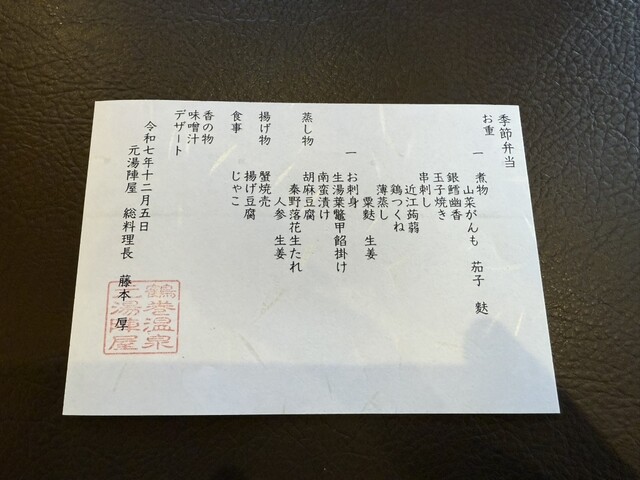 季節弁当
お重
一 煮物
山菜がんも 茄子 麩
銀鱈幽香
玉子焼き
串刺し
近江蒟蒻
鶏つくね
粟麩 生姜
薄蒸し
一 お刺身
生湯葉鼈甲餡掛け
南蛮漬け
蒸し物 胡麻豆腐
秦野落花生たれ
人参 生姜
揚げ物 蟹焼売
揚げ豆腐
食事 じゃこ
香の物
味噌汁
デザート
令和七年十二月五日
元湯陣屋 総料理長 藤本 厚
鶴巻温泉
元湯陣屋